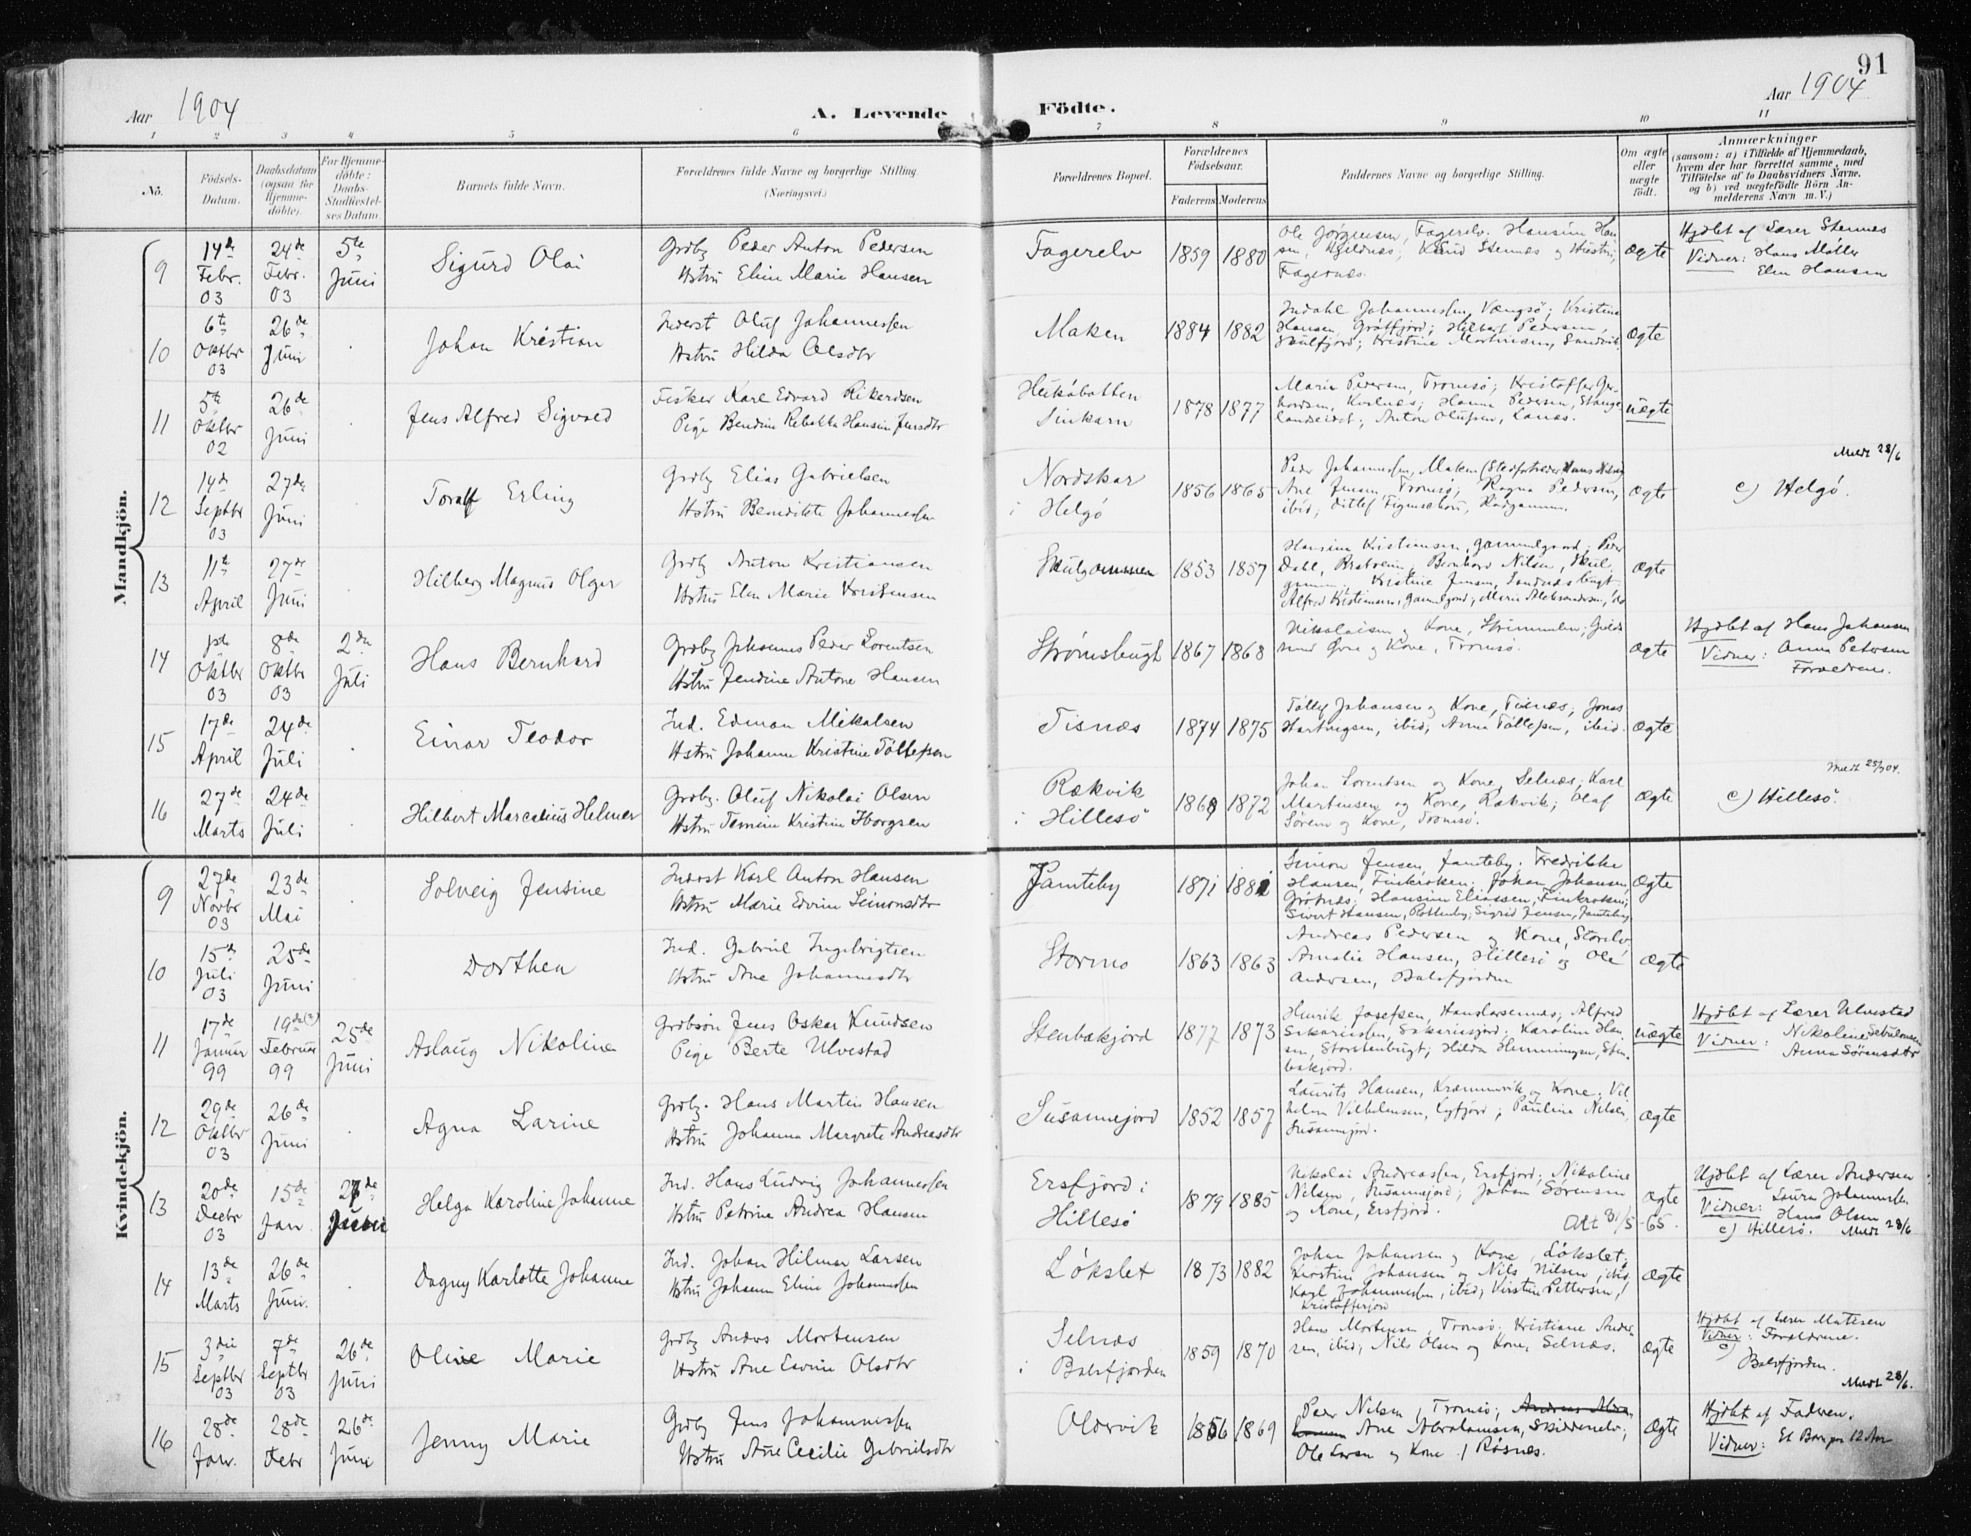 91
Aar 1904
A. Levende
Födte.
Aar 1904
1 2 3 4 5 6 7 8 9 10 11
No.
Födsels-
Datum.
Daabsdatum
(ogsaa for
Hjemme-
döbte).
For Hjemme-
döbte:
Daabs-
Stadfæstel-
ses Datum
Barnets fulde Navn.
Forældrenes fulde Navne og borgerlige Stilling.
(Næringsvei.)
Forældrenes Bopæl.
Forældrenes
Födselsaar.
Faderens
Moderens
Faddernes Navne og borgerlige Stilling.
Om ægte
eller
uægte
födt.
Anmærkninger
(saasom: a) i Tilfælde af Hjemmedaab,
hvem der har forrettet samme, med
Tilföielse af to Daabsvidners Navne,
og b) ved uægtefödte Börn An-
melderens Navn m. V.)
Mandkjön.
9
14de
Febr.
03
24de
Febr.
03
5te
Juni
Sigurd Olai
Grdbr Peder Anton Pedersen
Hstru Eline Marie Hansen
Fagerelv
1859
1880
Ole Jørgensen, Fagerelv. Hansine Han
sen, Kjeldnæs; Knud Stennæs og Hustru,
Fagernæs.
Ægte
Hjdøbt af Lærer Stennes
Vidner: Hans Møller
Elen Hansen
10
6te
Oktbr
03
26de
Juni
Johan Kristian
Inderst Oluf Johannessen
Hstru Hilda Olsdtr
Maken
1884
1882
Indahl Johannessen, Vængsø; Kristine
Hansen, Grøtfjord; Hilbert Pedersen,
Skulfjord; Kristine Mortinsen, Sandvik
Ægte
11
5te
Oktbr
02
26de
Juni
Jens Alfred Sigvald
Fisker Karl Edvard Rikardsen
Pige Bendine Rebekka Hansine Jensdtr
1878
1877
Marie Pedersen, Tromsø; Kristoffer
Hanna Pedersen,
Anton Olufsen,
uægte
12
14de
Septbr
03
27de
Juni
Toralf Erling
Grdbr Elias Gabrielsen
Hstru Benedikte Johannessen
Nordskar
i Helgö
1856
1865
Peder Johannessen, Maken
Ane Jensen, Tromsø; Ragna Pedersen,
ibid;
Ægte
Medt 28/6
c) Helgö.
13
11te
April
27de
Juni
Hilberg Magnus Olger
Grdbr Anton Kristiansen
Hstru Elen Marie Kristensen
Skulgammen
1853
1857
Hansine Kristiansen, Gammelgaard; Peder
Dahl, Bernhard Nilsen, Skul
gammen. Kristine Jensen,
Alfred Kristiansen, Gammelgaard; Marie Aleksandersen, ibid
Ægte
14
1ste
Oktbr
03
8de
Oktbr
03
2den
Juli
Hans Bernhard
Grdbr Johannes Peder Lorentsen
Hstru Jendine Antone Hansen
Strömsbugt
1867
1868
Nikolaisen og Kone,
og Kone, Tromsö.
Ægte
Hjdøbt af Hans Johansen
Vidner: Anna Petersen
Forældrene.
15
17de
April
24de
Juli
Einar Teodor
Ind. Edman Mikalsen
Hstru Johanna Kristine Töllefsen
Tisnæs
1874
1875
Töllef Johansen og Kone, Tisnæs; Jonas
Hartvigsen, ibid; Anna Töllefsen, ibid.
Ægte
16
27de
Marts
24de
Juli
Hilbert Marcelius Helmer
Grdbr. Oluf Nikolai Olsen
Hstru Tomine Kristine
Rækvik
i Hillesö
1872
Johan Lorentsen og Kone, Selnæs; Karl
Martinsen og Kone, Rækvik; Olaf
Sörem og Kone, Tromsö.
Ægte
c) Hillesö.
Kvindekjön.
9
27de
Novbr
03
23de
Mai
Solveig Jensine
Inderst Karl Anton Hansen
Hstru Marie Edvine Simonsdtr
Jamteby
1871
Simon Jensen, Jamteby. Fredrikke
Hansen, Finkroken; Johan Johansen,
Grötnæs; Hansine Eliassen, Finkroken;
Sivert Hansen, Sigrid Jensen, Jamteby
Ægte
10
15de
Juli
03
25de
Juni
Dorthea
Ind. Gabriel Ingebrigtsen
Hstru Ane Johannesdtr
Stormo
1863
1863
Andreas Pedersen og Kone, Storelv,
Amalie Hansen, Hillesö og Ole
Andersen, Balsfjorden
Ægte
11
17de
Januar
99
19de(?)
Februar
99
25de
Juni
Aslaug Nikoline
Grdbsön Jens Oskar Knudsen
Pige Berte Ulvestad
Stenbækjord
1877
1873
Henrik Josefsen, Alfred
Karoline Han
sen, Storstenbugt; Hilda Henningsen, Sten
bækjord.
uægte
Hjdøbt af Lærer Ulvestad
Vidner: Nikoline Sebulonsen
Anna Sörensdtr
12
29de
Oktbr
03
26de
Juni
Agna Larine
Grdbr. Hans Martin Hansen
Hstru Johanna Margrete Andreasdtr
Susannejord
1852
1857
Laurits Hansen, Kræmmervik og Kone. Vil
helm Vilhelmsen, Lyfjord; Pauline Nilsen,
Susannejord.
Ægte
13
20de
Decbr
03
15de
Jan.
Juni
Helga Karoline Johanne
Ind. Hans Ludvig Johannessen
Hstru Petrine Andrea Hansen
Ersfjord i
Hillesö
1879
1885
Nikolai Andreassen, Ersfjord; Nikoline
Nilsen, Susannejord; Johan Sörensen
og Kone, Ersfjord.
Att 31/5-65.
Ægte
Hjdøbt af Lærer Andersen
Laura Johannessen
Vidner: Hans Olsen
c) Hillesø. Medt 28/6
14
13de
Marts
26de
Juni.
Dagny Karlotte Johanne
Ind. Johan Hilmar Larsen
Hstru Johanna Eline Johannessen
Løkslet
1873
1882
Johan Johansen og Kone, Løkslet;
Kirstine Johansen og Nils Nilsen, ibid;
Karl Johannessen, ibid; Kirsten Pettersen,
Kristoffersjord
Ægte
15
3die
Septbr
03
7de
Septbr
03
26de
Juni
Oline Marie
Grdbr Anders Mortensen
Hstru Ane Olsdtr
Selnæs
i Balsfjorden
1859
1870
Hans Mortensen, Tromsö; Kristiane Ander
sen, ibid; Nils Olsen og Kone, Selnæs.
Ægte
Hjdøbt af Lærer Matisen
Vidner: Forældrene.
c)
Balsfjorden.
Medt 28/6.
16
28de
Jan.
28de
Febr
26de
Juni
Jenny Marie
Grdbr Jens Johannessen
Hstru Ane Cecilie Gabrielsdtr
Oldervik
1856
1869
Peder Nilsen, Tromsö;
Ane Abrahamsen, Skittenelv;
Ole Larsen og Kone, Røsnæs.
Ægte
Hjdøbt af Faderen.
Vidner: Et Barn paa 12 Aar